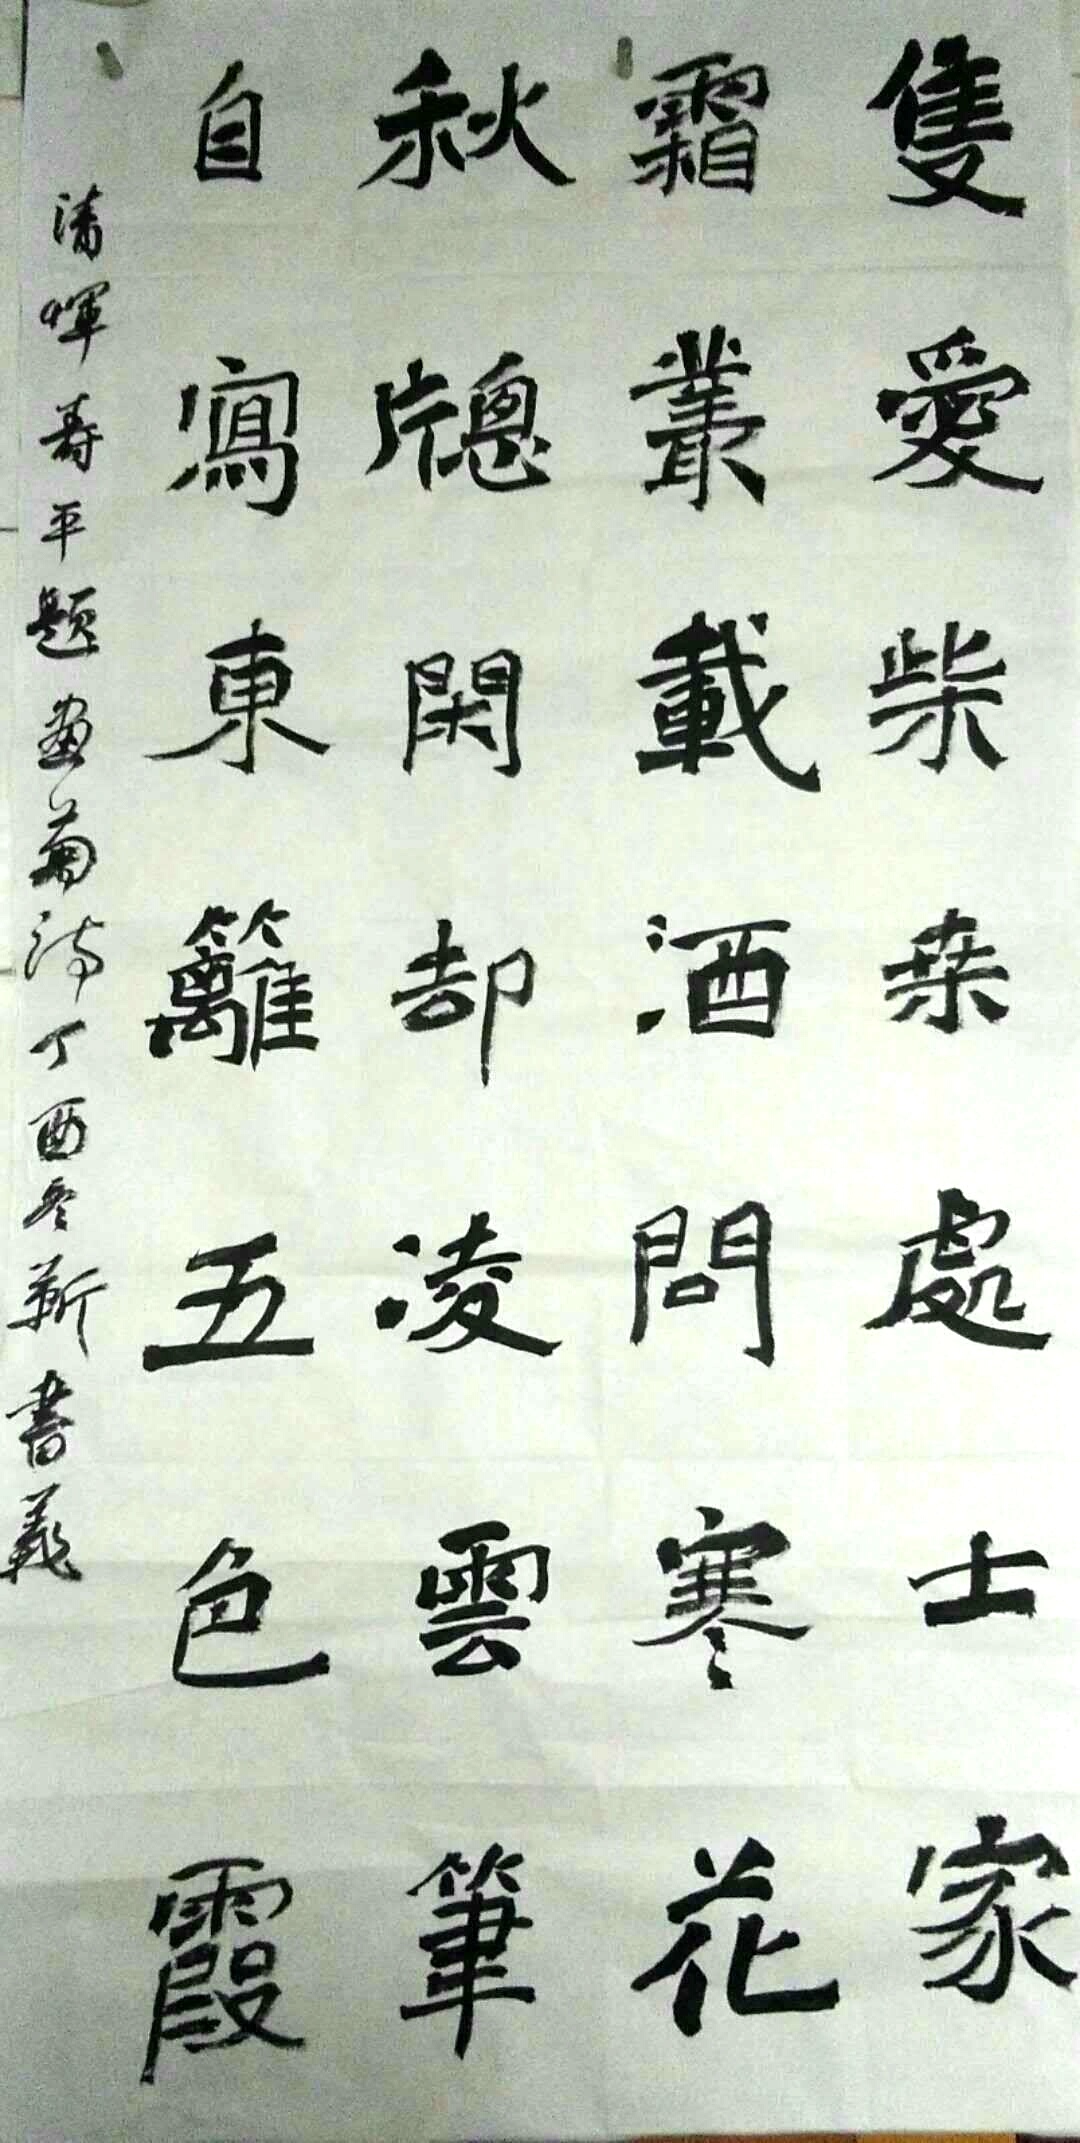 隻愛柴桒處士家
霜叢載酒問寒花
秋牕閑却凌雲筆
自寫東籬五色霞
清惲寿平题畫菊诗丁酉冬靳書義